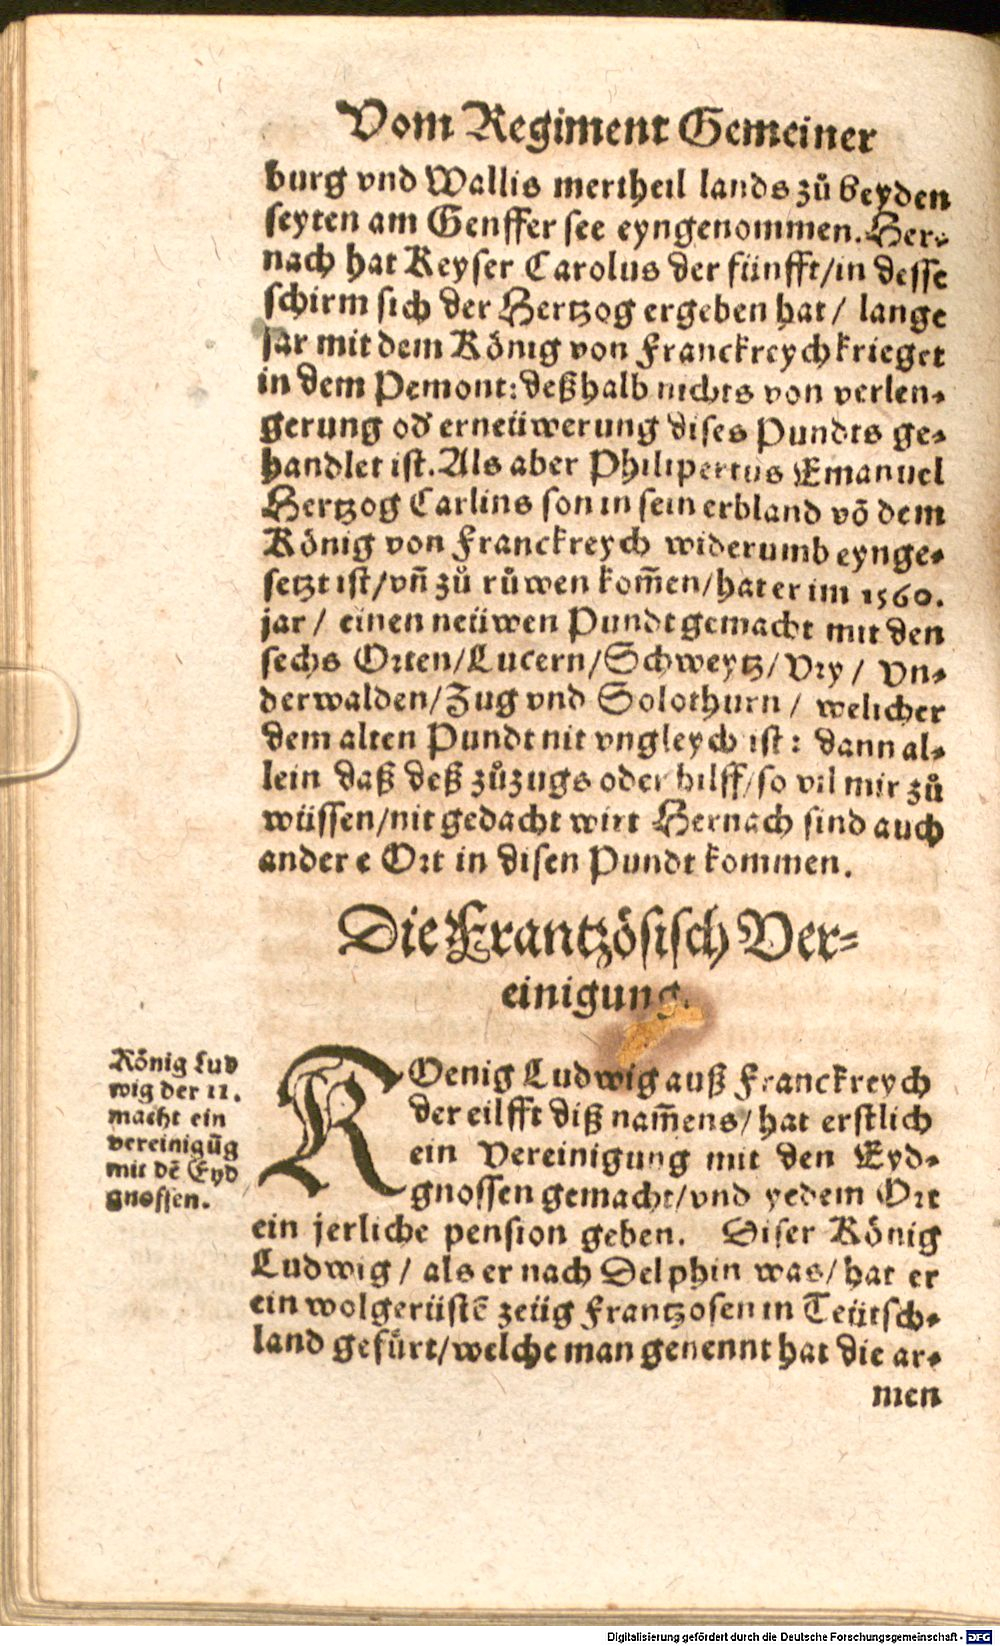 Vom Regiment Gemeiner
burg vnd Wallis mertheil lands zů beyden
seyten am Genffer see eyngenommen. Her-
nach hat Keyser Carolus der fünfft/in desse
schirm sich der Hertzog ergeben hat / lange
jar mit dem König von Franckreych krieget
in dem Pemont: deßhalb nichts von verlen-
gerung od' erneüwerung dises Pundts ge-
handlet ist. Als aber Philipertus Emanuel
Hertzog Carlins son in sein erbland võ dem
König von Franckreych widerumb eynge-
setzt ist/vñ zů růwen kom̃en/hat er im 1560.
jar / einen neüwen Pundt gemacht mit den
sechs Orten/Lucern/Schweytz/Vry / Vn-
derwalden/Zug vnd Solothurn / welicher
dem alten Pundt nit vngleych ist: dann al-
lein daß deß zůzugs oder hilff/so vil mir zů
wüssen/nit gedacht wirt Hernach sind auch
andere Ort in disen Pundt kommen.
Die Frantzösisch Ver-
einigung.
König Lud
wig der 11.
macht ein
vereinigũg
mit dẽ Eyd
gnossen.
KOenig Ludwig auß Franckreych
der eilfft diß nam̃ens/hat erstlich
ein Vereinigung mit den Eyd-
gnossen gemacht/vnd yedem Ort
ein jerliche pension geben. Diser König
Ludwig / als er nach Delphin was/hat er
ein wolgerüstẽ zeüg Frantzosen in Teütsch-
land gefürt/welche man genennt hat die ar-
men
Digitalisierung gefördert durch die Deutsche Forschungsgemeinschaft - DFG